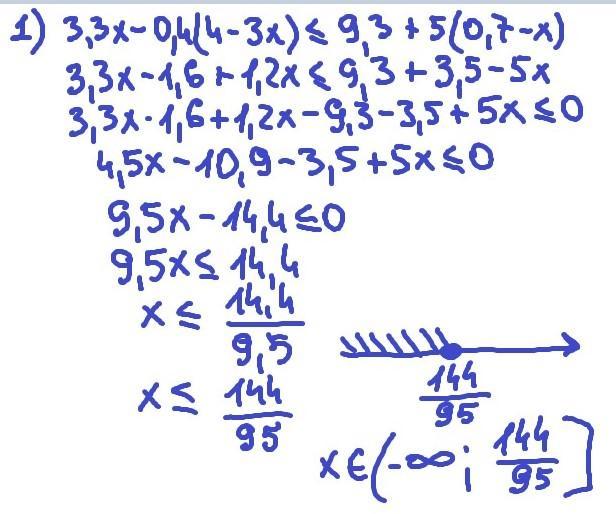 1) 3,3x-0,4(4-3x) ≤ 9,3+5(0,7-x)
3,3x-1,6+1,2x ≤ 9,3+3,5-5x
3,3x·1,6+1,2x-9,3-3,5+5x ≤ 0
4,5x-10,9-3,5+5x ≤ 0
9,5x-14,4 ≤ 0
9,5x ≤ 14,4
x ≤ 14,4/9,5
x ≤ 144/95
144/95
x∈(-∞; 144/95]